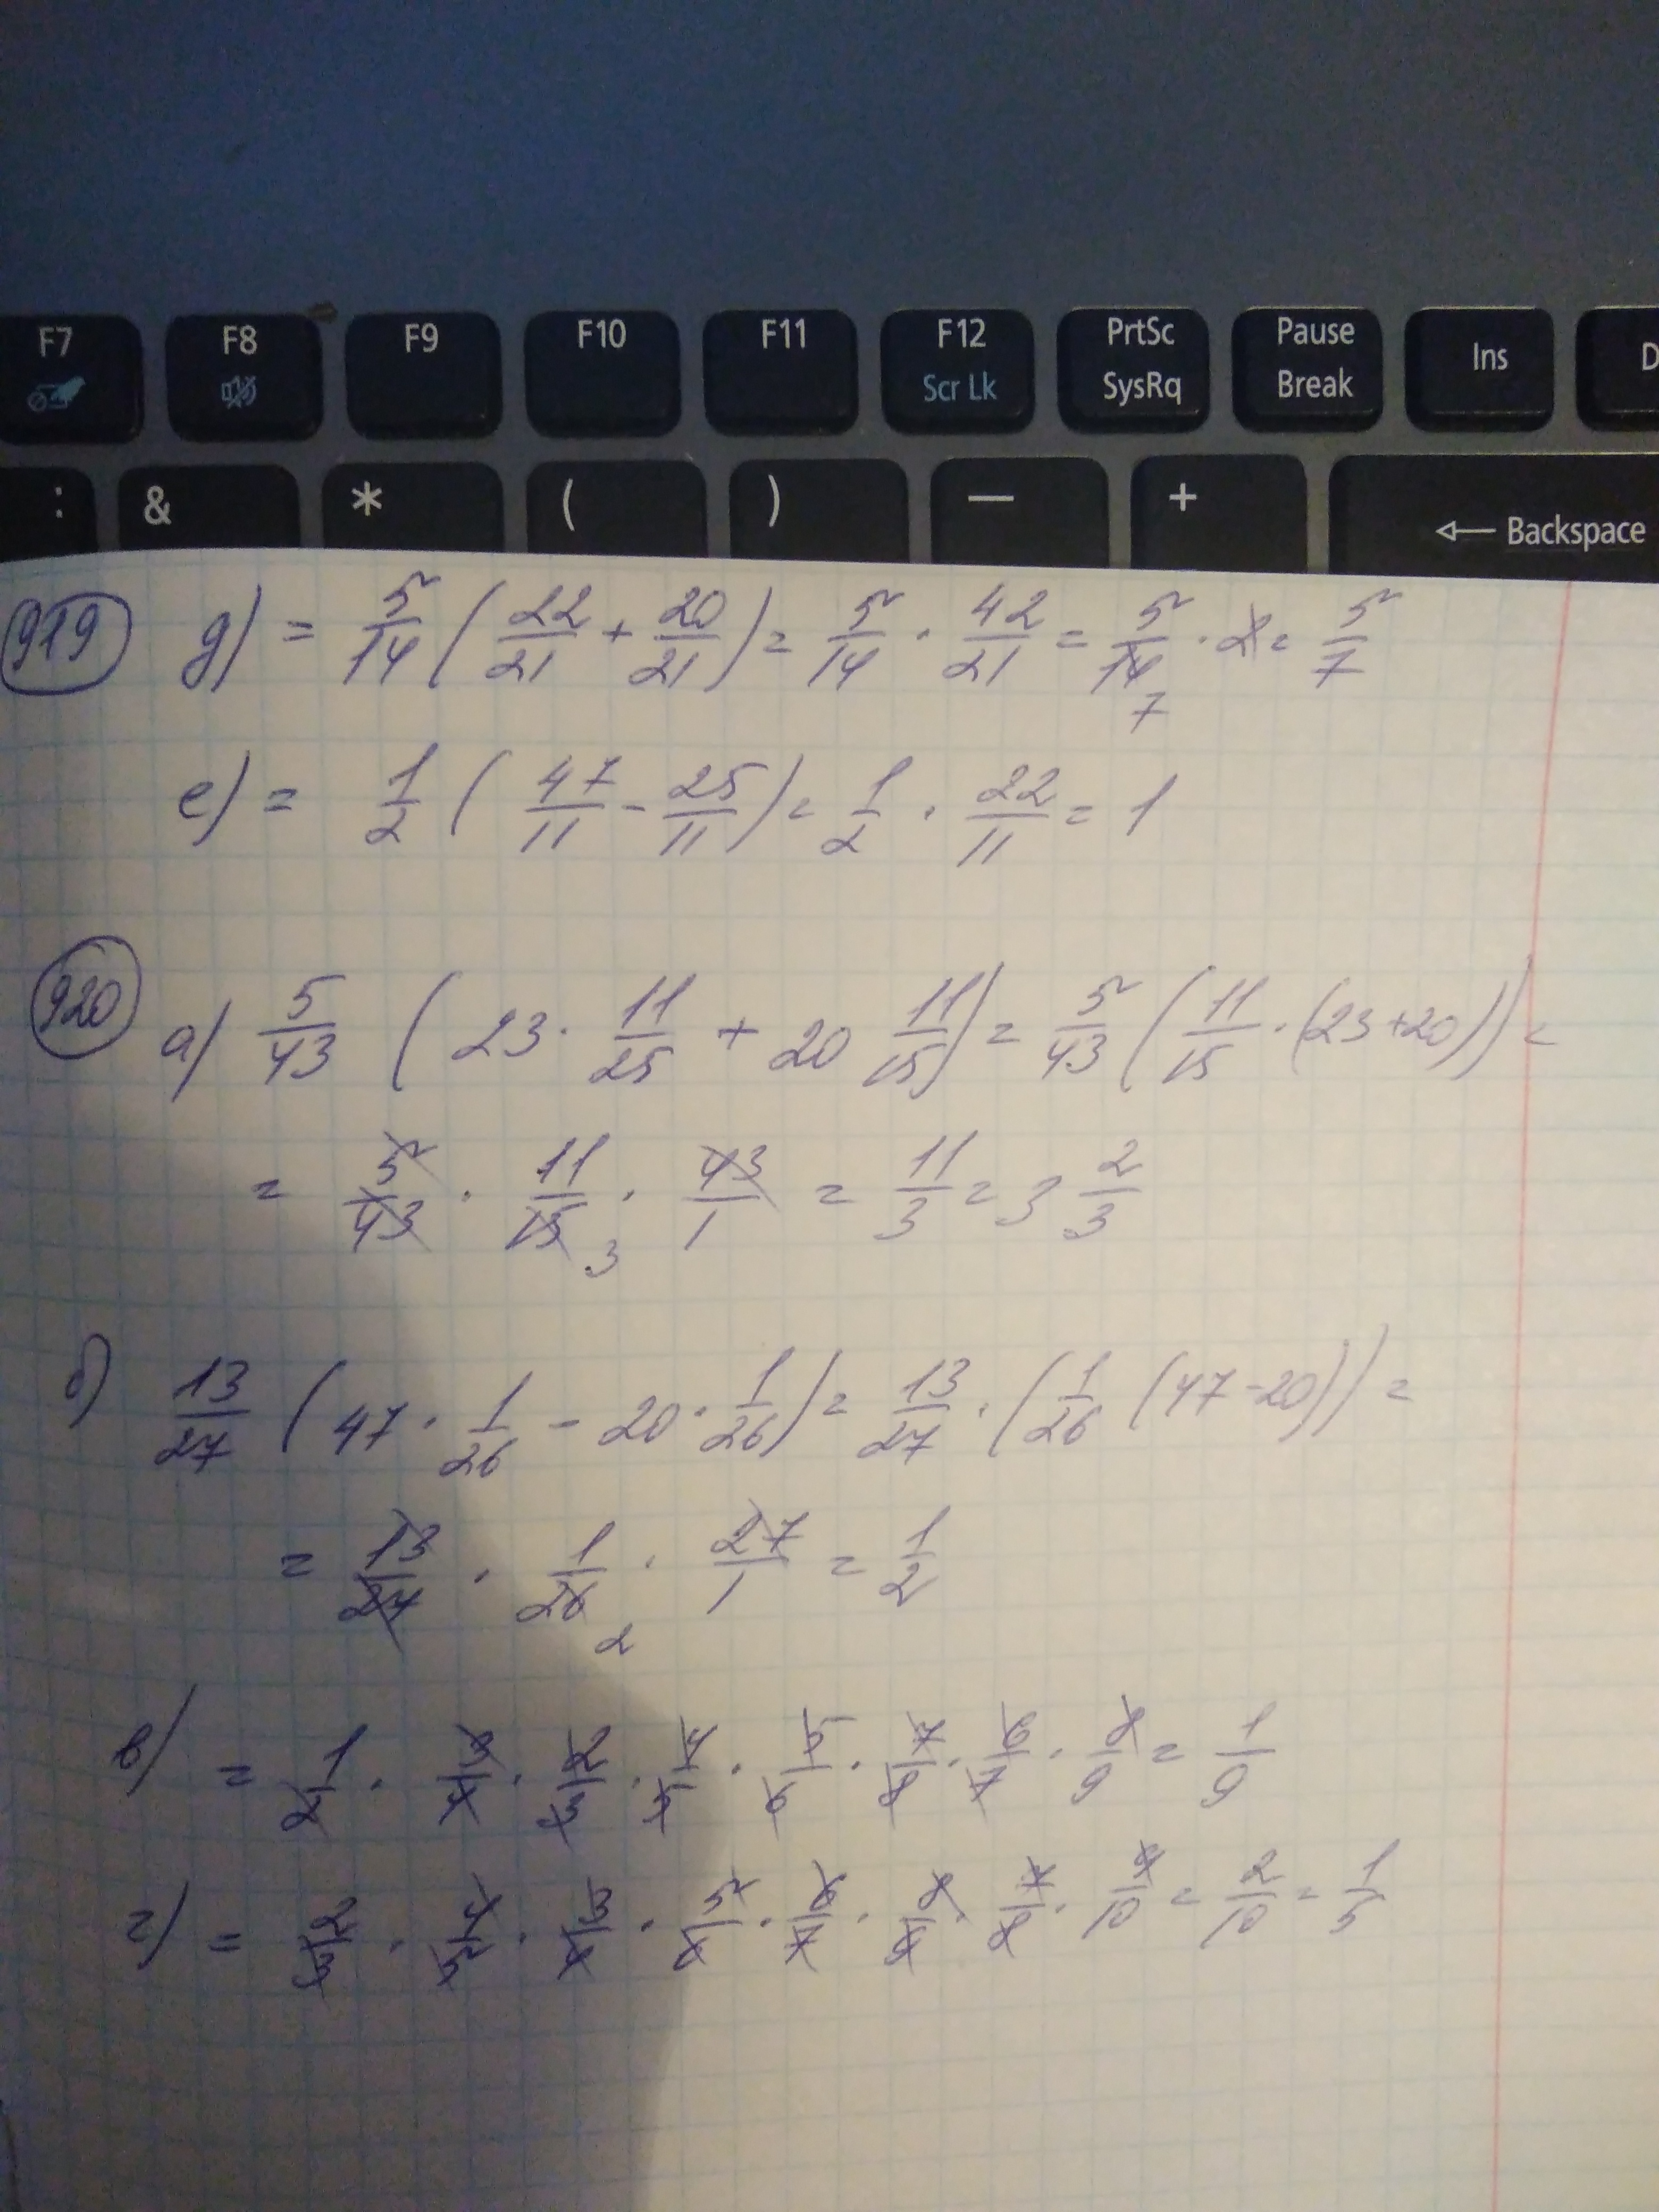 F7 F8 F9 F10 F11 F12 Scr Lk PrtSc SysRq Pause Break Ins D
: & * ( ) — + ← Backspace
919 g) = 5/14 (22/21 + 20/21) = 5/14 · 42/21 = 5/14 · 2 = 5/7
7
e) = 1/2 (47/11 - 25/11) = 1/2 · 22/11 = 1
920 а) 5/43 (23 · 11/25 + 20 11/15) = 5/43 (11/15 · (23+20)) =
= 5/43 · 11/15 3 · 43/1 = 11/3 = 3 2/3
б) 13/27 (47 · 1/26 - 20 · 1/26) = 13/27 · (1/26 (47-20)) =
= 13/27 · 1/26 2 · 27/1 = 1/2
в) = 1/2 · 3/4 · 2/3 · 4/5 · 5/6 · 7/8 · 6/7 · 8/9 = 1/9
г) = 2/3 · 4/5 · 3/4 · 5/6 · 6/7 · 8/9 · 7/8 · 9/10 = 2/10 = 1/5